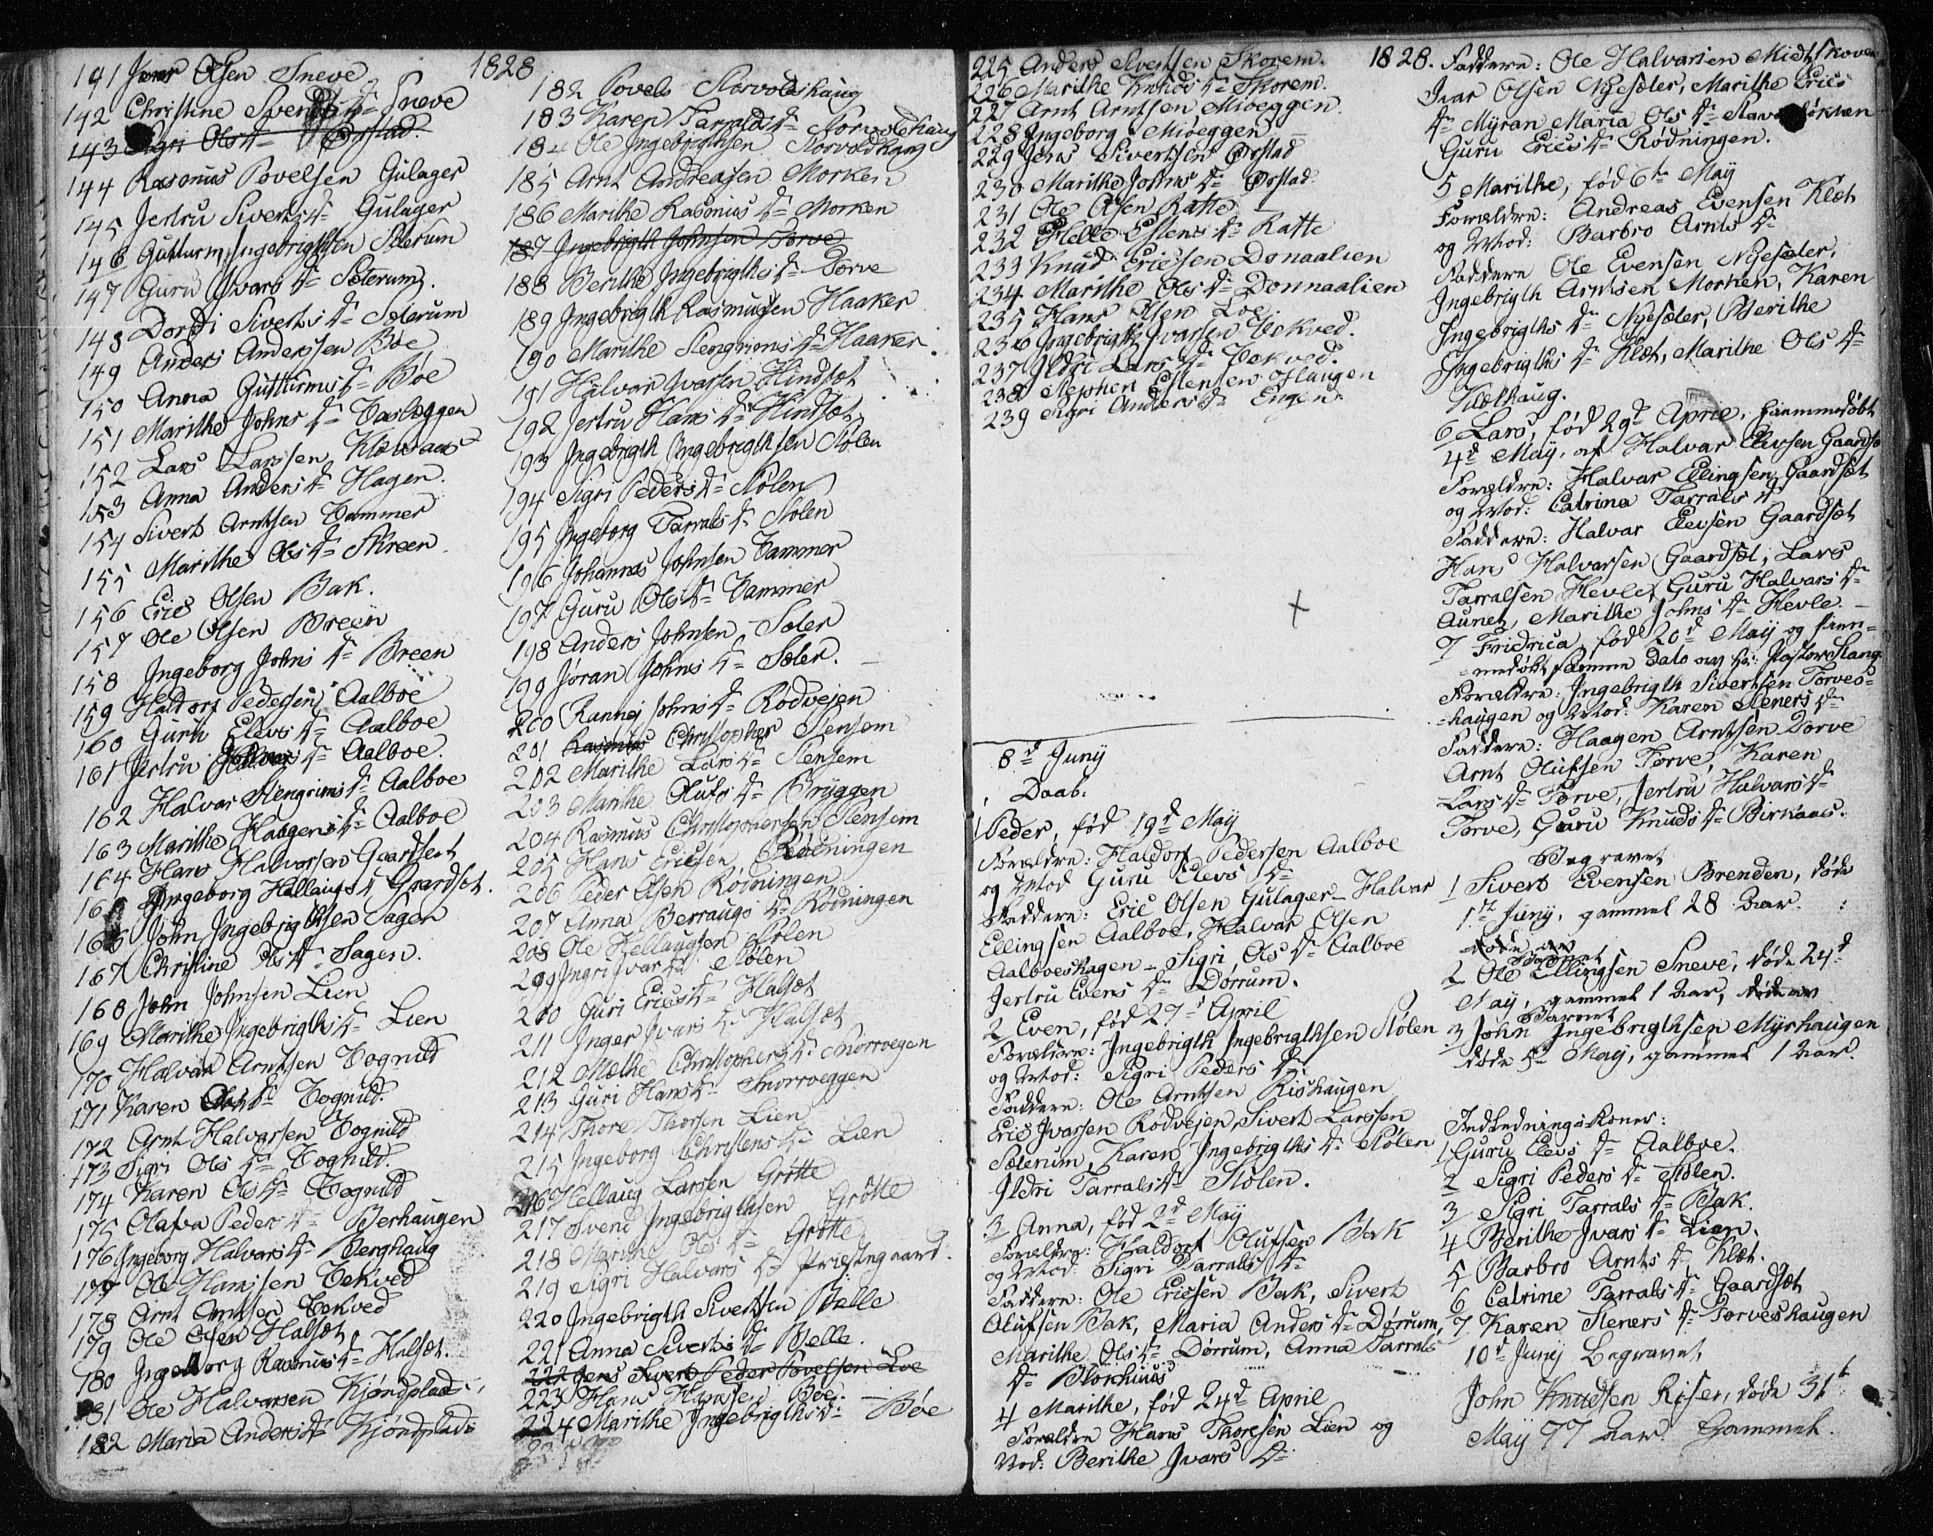 1828
141 Jens Olsen Sneve
142 Christine Siverts Dr Sneve
143 Sigri Ols Dr Ørstad.
144 Rasmus Povelsen Gulager
145 Jertru Siverts Dr Gulager
146 Gutturm Ingebrigthsen Sæterum
147 Guru Ivars Dr Sæterum.
148 Dordi Siverts Dr Sæterum
149 Anders Anderssen Bøe
150 Anna Gutturms Dr Bøe
151 Marithe Johns Dr
152 Lars Larssen
153 Anna Anders Dr Hagen.
154 Sivert Arntsen Vammer
155 Marithe Ols Dr Skreen
156 Eric Olsen Bak.
157 Ole Olsen Breen
158 Ingeborg Johns Dr Breen
159 Haldorf Pedersen Aalboe
160 Guru Elevs Dr Aalboe
161 Jertru Dr Aalboe.
162 Halvar Stengrims Dr Aalboe
163 Marithe Haagens Dr Aalboe
164 Hans Halvarsen Gaardsæt
165 Ingeborg Hellaugs Dr Gaardsæt.
166 John Ingebrigthsen Sagen
167 Christine Ols Dr Sagen.
168 John Johnsen Lien
169 Marithe Ingebrigths Dr Lien
170 Halvar Arntsen Vognild
171 Karen Dr Vognild.
172 Arnt Halvarsen Vognild
173 Sigri Ols Dr Vognild.
174 Karen Ols Dr Vognild
175 Olava Peders Dr Berhaugen
176 Ingeborg Halvars Dr Berghaug
177 Ole Hansen Vekved
178 Arnt Arntsen Vekved
179 Ole Olsen Halsæt
180 Ingeborg Rasmus Dr Halsæt.
181 Ole Halvarsen Kjøndplads
182 Maria Anders Dr Kjøndplads
182 Povel Storvoldhaug
183 Karen Tarralds Dr Storvoldhaug
184 Ole Ingebrigthsen Storvoldhaug
185 Arnt Andreasen Morken
186 Marithe Rasmus Dr Morken
187 Ingebrigth Johnsen Torve
188 Berithe Ingebrigths Dr Torve
189 Ingebrigth Rasmussen Haaker
190 Marithe Stengrims Dr Haaker.
191 Halvar Ivarsen Hindsæt
192 Jertru Hans Dr Hindsæt
193 Ingebrigth Ingebrigthsen Stølen
194 Sigri Peders Dr Stølen
195 Ingeborg Tarrals Dr Stølen
196 Johannes Johnsen Vammer
197 Guru Ols Dr Vammer
198 Anders Johnsen Sæter
199 Jøran Johns Dr Sæter.
200 Rannej Johns Dr Rodvejen
201 Rasmus Christopher Stensem
202 Marithe Lars Dr Stensem
203 Marithe Olufs Dr Bryggen
204 Rasmus Christophersen Stensem
205 Hans Ericsen Rødningen
206 Peder Olsen Rødningen
207 Anna Berraugs Dr Rødningen
208 Ole Hellaugsen Stølen
209 Ingri Ivars Dr Stølen
200 Guri Erics Dr Halsæt
211 Inger Ivars Dr Halsæt
212 Mæthe Christophers Dr Snorrvegen
213 Guri Hans Dr Snorrveggen
214 Thore Thorsen Lien
215 Ingeborg Christens Dr Lien
216 Hellaug Larsen Grøtte
217 Svend Ingebrigthsen Grøtte
218 Marithe Ols Dr Grøtte
219 Sigri Halvars Dr Præstegaard.
220 Ingebrigth Sivertsen Bjelle
221 Anna Siverts Dr Bjelle.
222 Jens Sivert Peder Povelsen Loe
223 Hans Hansen Bøe.
224 Marithe Ingebrigths Dr Bøe
1828.
225 Anders Sivertsen Skorem.
226 Marithe Knuds Dr Skorem.
227 Arnt Arntsen Mioeggen.
228 Ingeborg Mioeggen.
229 Jens Sivertsen Ørstad
230 Marithe Johns Dr Ørstad.
231 Ole Olsen Ratte
232 Estens Dr Ratte
233 Knud Ericsen Donaalien
234 Marithe Ols Dr Donnaalien
235 Hans Olsen Loe
236 Ingebrigth Ivarsen Vekved.
237 Ildri Lars Dr Vekved.
238 Stephen Estensen Haugen
239 Sigri Anders Dr Engen
8d Juny
Daab.
1 Peder, fød 19d May
Forældre: Haldorf Pedersen Aalboe
og Mod Guru Elevs Dr
Faddere: Eric Olsen Gulager Halvar
Ellingsen Aalboe, Halvar Olsen
Aalboeshagen Sigri Ols Dr Aalboe
Jertru Evens Dr Dørrum.
2 Even, fød 27d April
Forældre: Ingebrigth Ingebrigthsen Stølen
og Mod: Sigri Peders Dr
Faddere: Ole Arntsen Rishaugen
Eric Ivarsen Rodvejen Sivert Larssen
Sæterum, Karen Ingebrigths Dr Stølen
Ildri Tarrals Dr Stølen.
3 Anna, fød 2d May
Forældre: Haldorf Olufsen Bak
og Mod: Sigri Tarrals Dr
Faddere: Ole Ericsen Bak, Sivert
Olufsen Bak, Maria Anders Dr Dørrum,
Marithe Ols Dr Dørrum, Anna Tarrals
Dr Blokhuus
4 Marithe, fød 24d April
Forældre Hans Thoresen Lien og
Mod: Berithe Ivars Dr
Faddere: Ole Halvarsen Midtskoven
Ivar Olsen Nyesæter, Marithe Erics
Dr Myran Maria Ols Dr
Guru Erics Dr Rødningen.
5 Marithe, fød 6te May
Forældre: Andreas Evensen Klæt
og Mod: Barbro Arnts Dr
Faddere Ole Evensen Nyesæter,
Ingebrigth Arntsen Morken, Karen
Ingebrigths Dr Nyesæter, Berithe
Ingebrigths Dr Klæt, Marithe Ols Dr
Klethaug.
6 Lars, fød 29d April, hiemmedøbt
4d May, af Halvar Elevsen Gaardsæt
Forældre: Halvar Ellingsen Gaardsæt
og Mod: Catrina Tarrals Dr
Faddere: Halvar Elevsen Gaardsæt
Hans Halvarsen Gaardsæt, Lars
Tarralsen Hevle, Guru Halvars Dr
Aunet, Marithe Johns Dr Hevle.
7 Fridrica, fød 20d May og hiem-
-medøbt samme Dato av Hr: Pastor Stang
Forældre: Ingebrigth Sivertsen Torves-
-haugen og Mod: Karen Steners Dr
Faddere: Haagen Arntsen Torve
Arnt Olufsen Torve, Karen
Lars Dr Torve, Jertru Halvars Dr
Torve, Guru Knuds Dr Birkaas.
Begravet
1 Sivert Evensen Brenden, døde
1ste Juny, gammel 28 Aar.
2 Ole Ellingsen Sneve, døde 24d
May, gammel 1 Aar,
Barnet
3 John Ingebrigthsen Myrhaugen
døde 5te May, gammel 1 Aar.
Indledningskoner:
1 Guru Elevs Dr Aalboe.
2 Sigri Peders Dr Stølen.
3 Sigri Tarrals Dr Bak.
4 Berithe Ivars Dr Lien.
5 Barbro Arnts Dr Klæt.
6 Catrine Tarrals Dr Gaardsæt
7 Karen Steners Dr Torveshaugen
10d Junij Begravet
John Knudsen Riser, døde 31te
Maij 77 Aar Gammel.